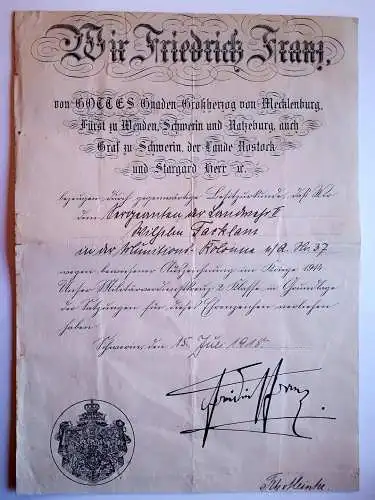 Wir Friedrich Franz,
von GOTTES Gnaden Großherzog von Mecklenburg,
Fürst zu Wenden, Schwerin und Ratzeburg, auch
Graf zu Schwerin, der Lande Rostock
und Stargard Herr etc.
bezeugen durch gegenwärtige Besitzurkunde, daß Wir
dem Sergeanten der Landwehr II
Wilhelm
in der Munitions-Kolonne Nr. 37
wegen bewiesener Auszeichnung im Kriege 1914
Unser Militärverdienstkreuz 2. Klasse in Grundlage
der Satzungen für dieses Ehrenzeichen verliehen
haben.
Schwerin, den 15. Juli 1915.
Friedrich Franz.